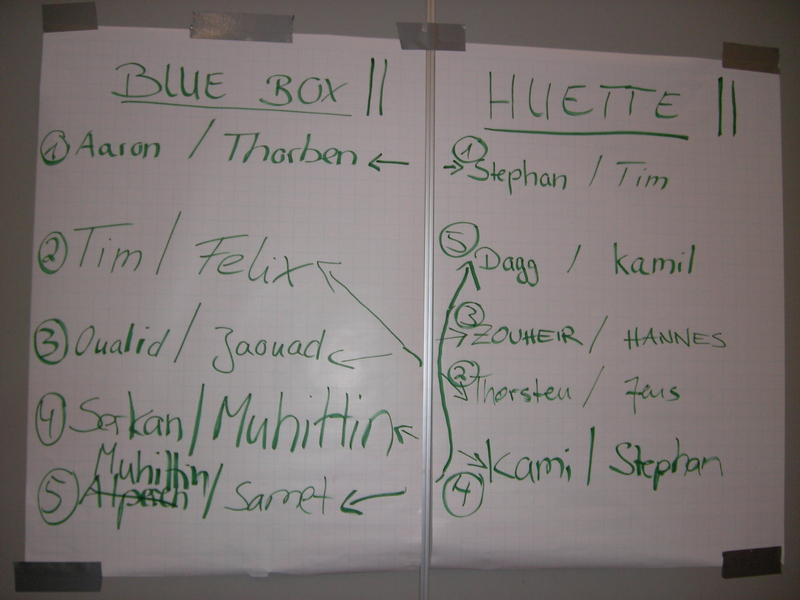 BLUE BOX II
① Aaron / Thorben ←
② Tim / Felix
③ Oualid / Zaouad ←
④ Serkan / Muhittin ←
Muhittin
⑤ / Samet ←
HUETTE II
① → Stephan / Tim
⑤ Dagg / Kamil
③ → ZOUHEIR / HANNES
② Thorsten / Jens
④ → Kami / Stephan